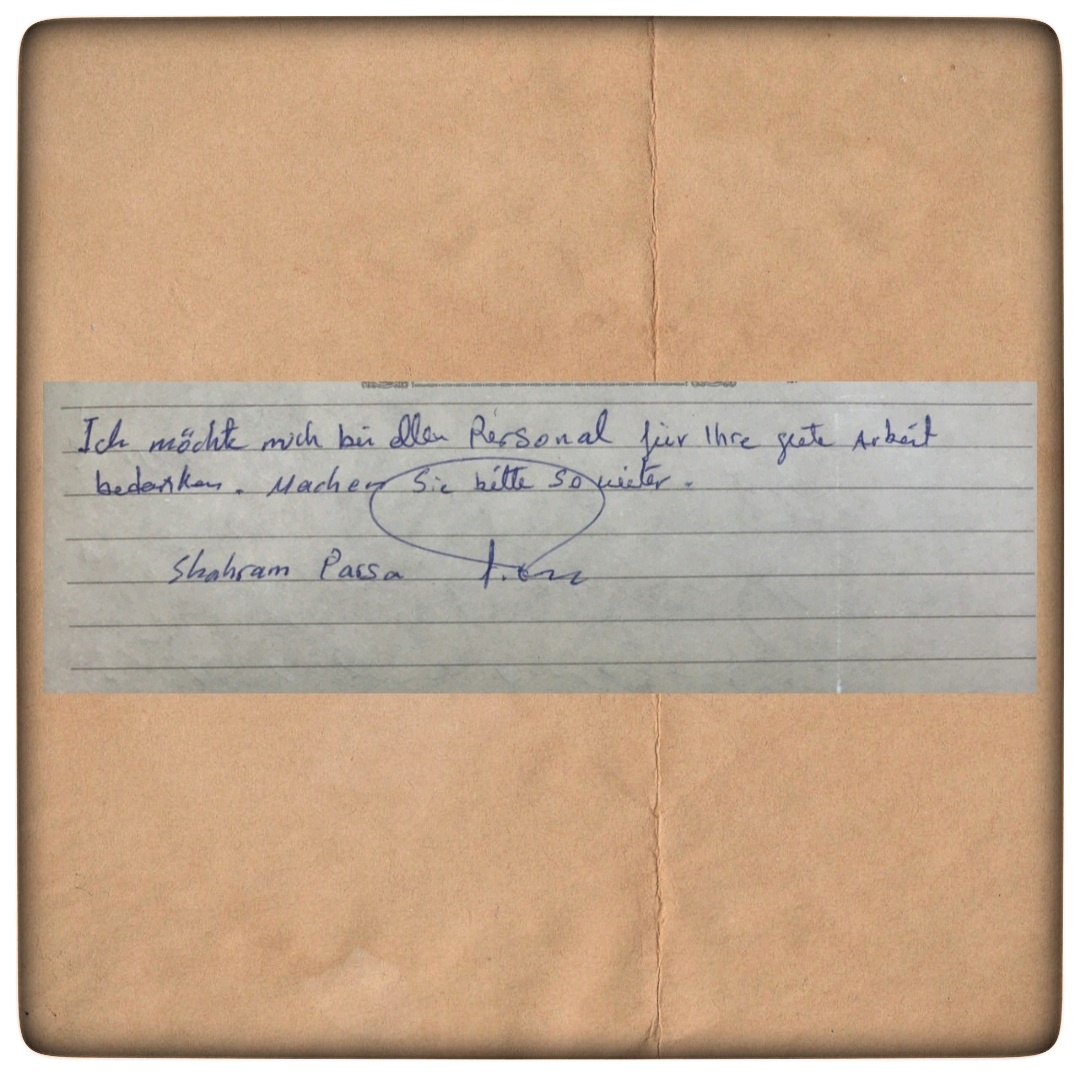 Ich möchte mich bei allen Personal für Ihre gute Arbeit
bedanken. Machen Sie bitte so weiter.
Shahram Parsa